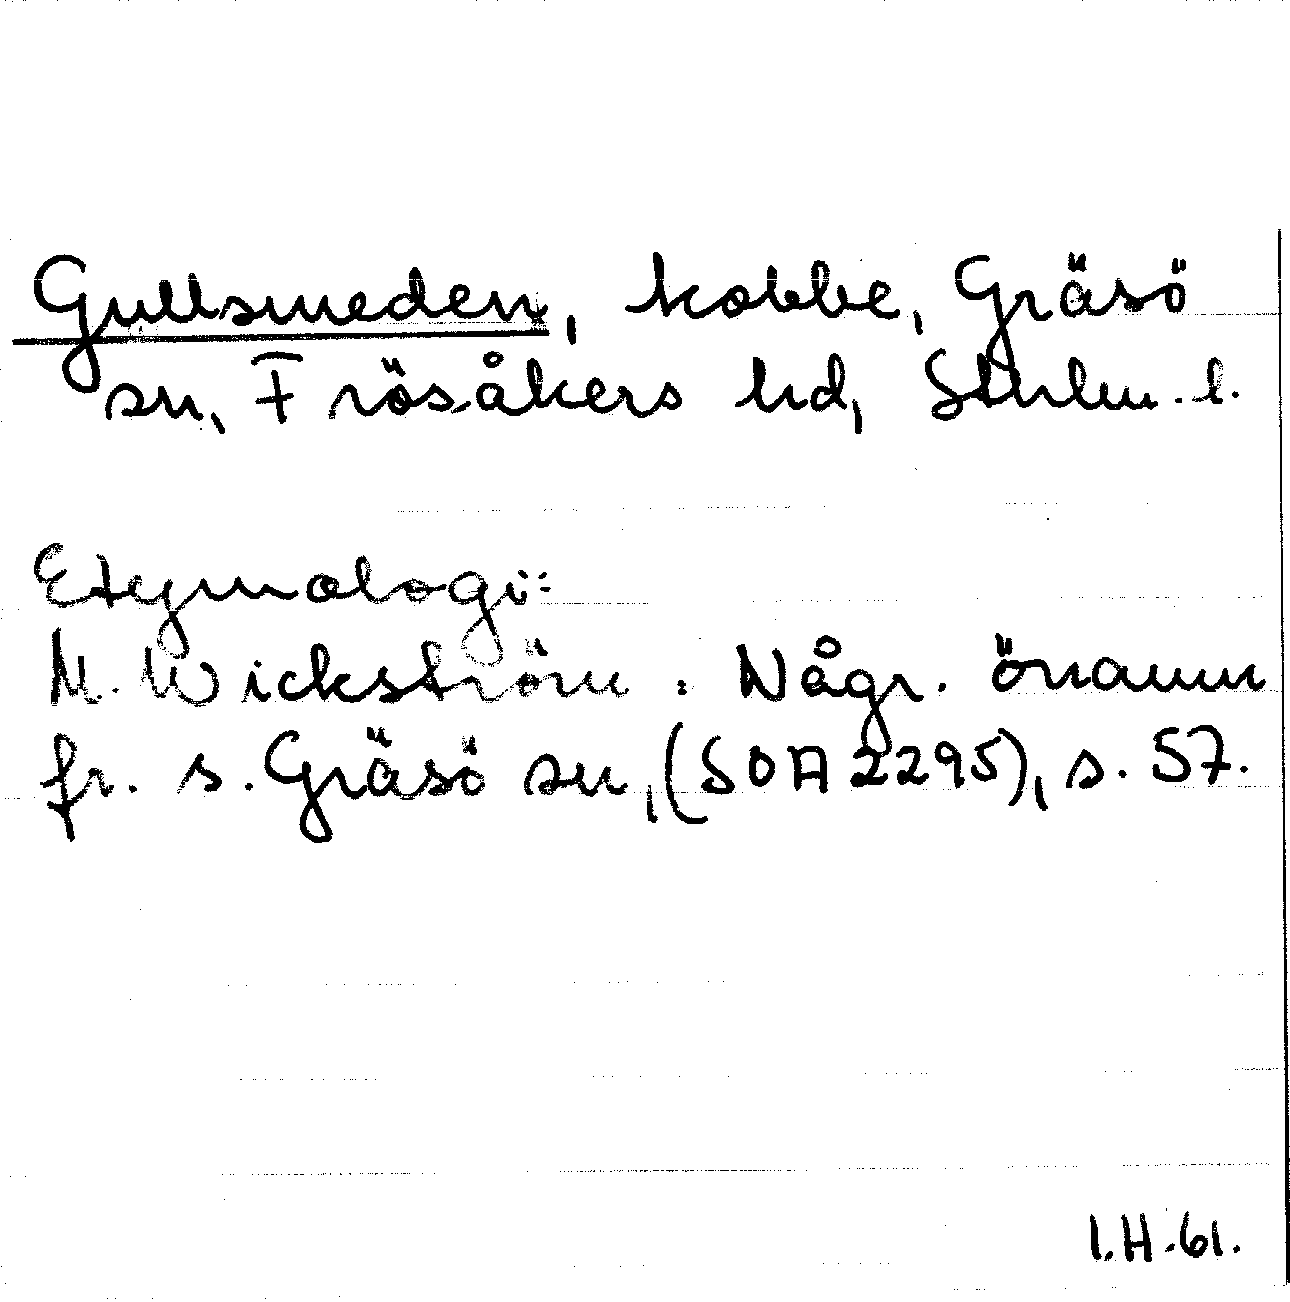 Gullsmeden, kobbe, Gräsö
sn, Frösåkers hd, Sthlm.l.
Etymologi:
M. Wickström: Någr. önamn
fr. s. Gräsö sn, (SOA 2295), s. 57.
I.H.61.